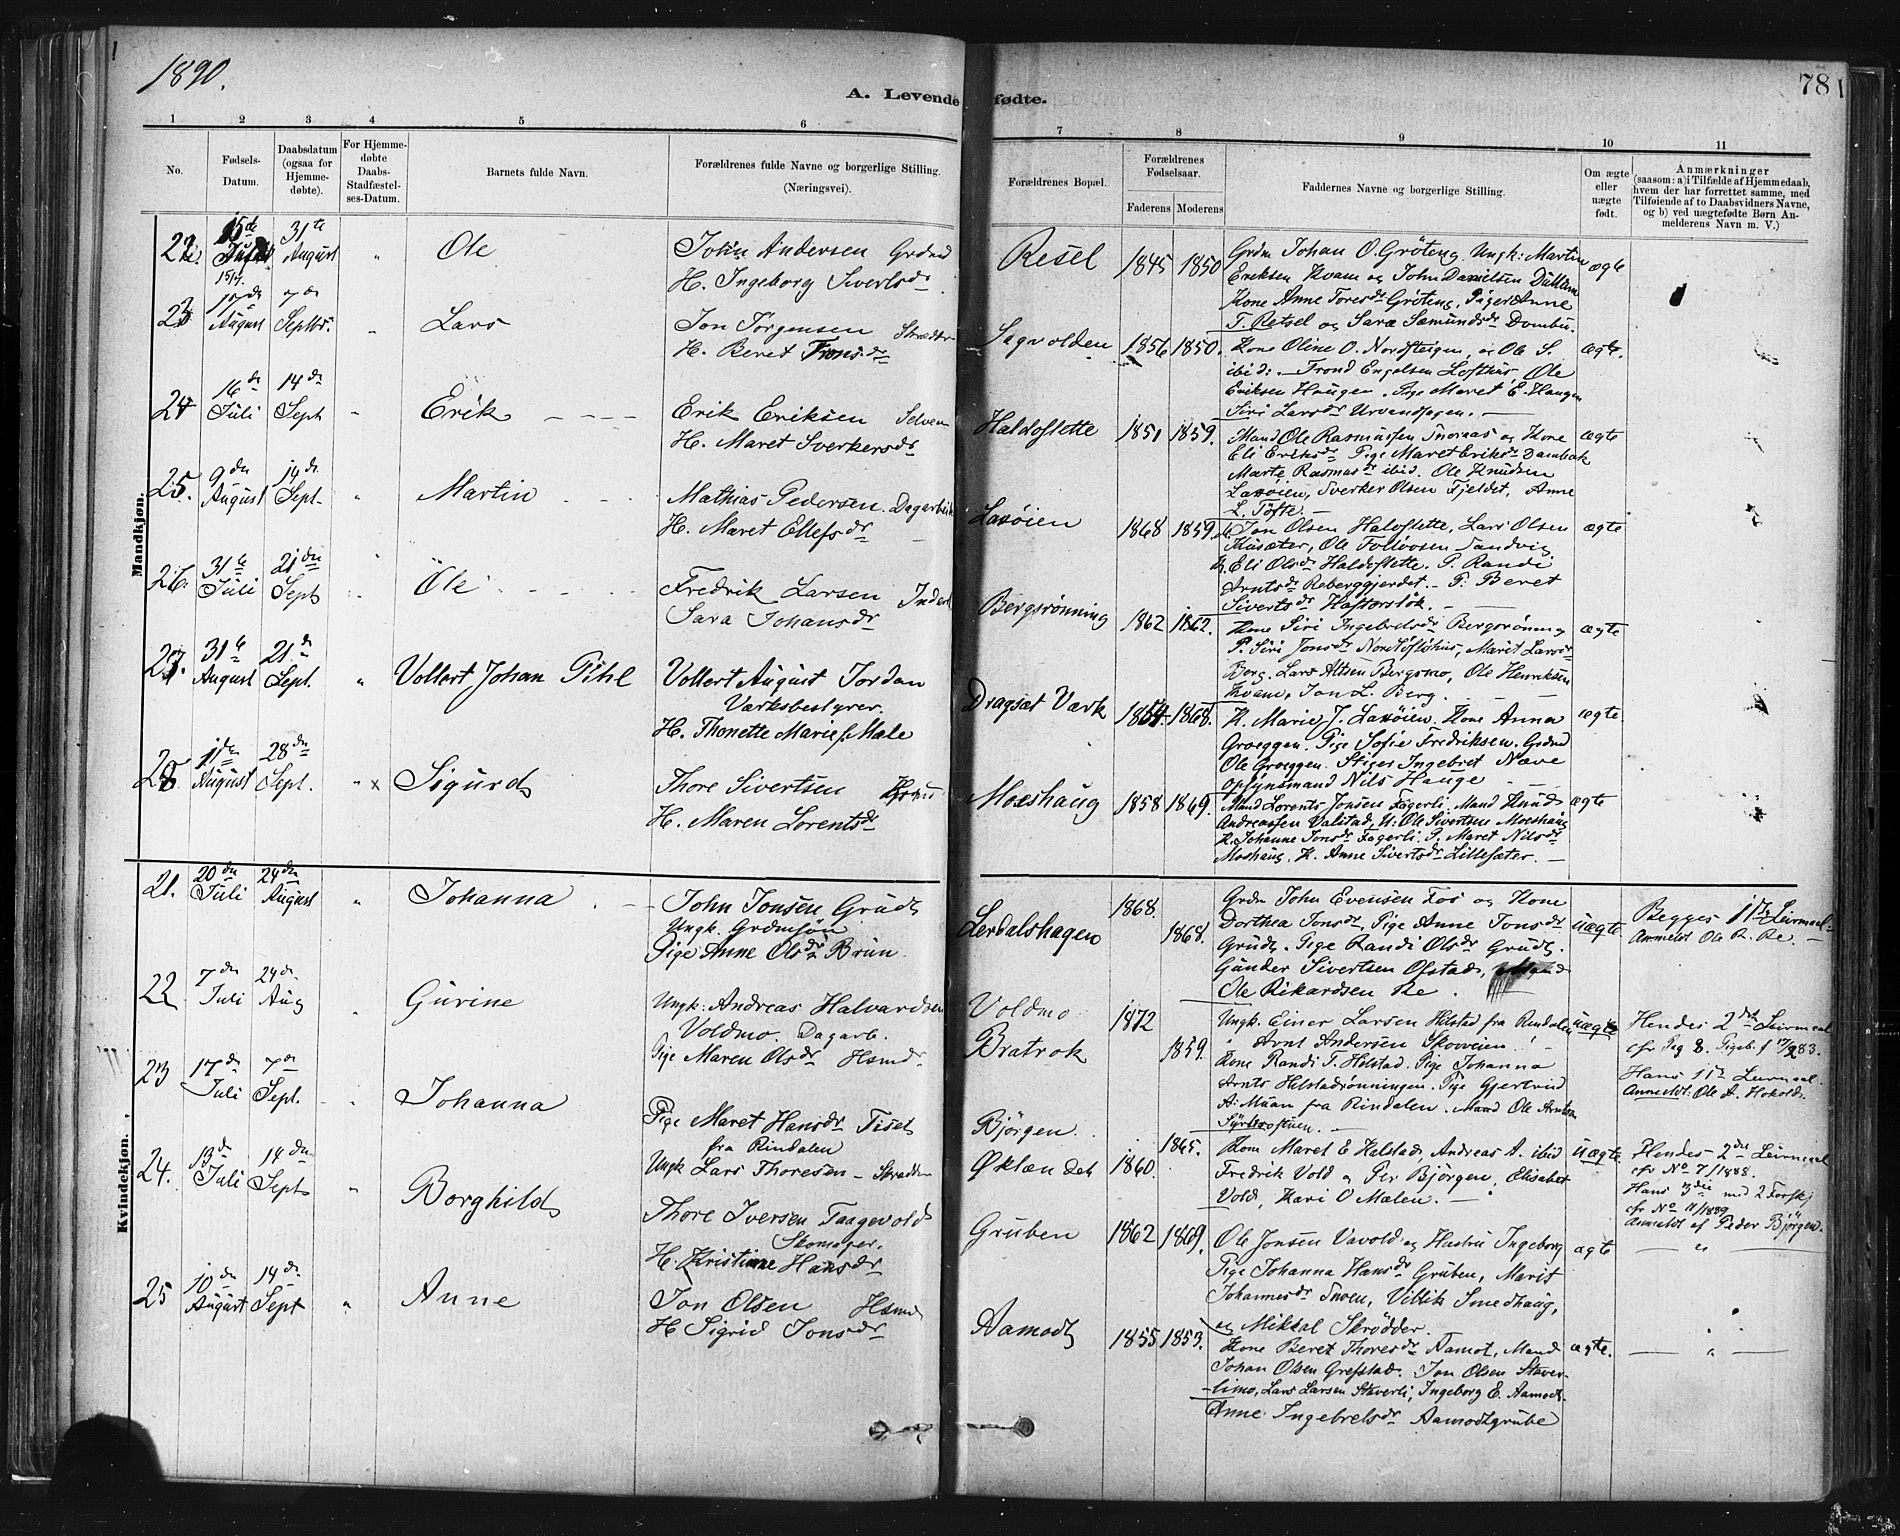 1890.
A. Levende fødte.
78
1 2 3 4 5 6 7 8 9 10 11
No.
Fødsels-Datum.
Daabsdatum (ogsaa for Hjemme-døbte).
For Hjemme-døbte Daabs-Stadfæstel-ses-Datum.
Barnets fulde Navn.
Forældrenes fulde Navne og borgerlige Stilling. (Næringsvei).
Forældrenes Bopæl.
Forældrenes Fødselsaar.
Faderens Moderens
Faddernes Navne og borgerlige Stilling.
Om ægte eller uægte født.
Anmærkninger
(saasom: a) i Tilfælde af Hjemmedaab,
hvem der har forrettet samme, med
Tilføiende af to Daabsvidners Navne,
og b) ved uægtefødte Børn An-
melderens Navn m. V.)
Mandkjøn.
22. 15de 31te August " Ole
John Andersen Grdmd
H. Ingeborg Sivertsdr
Resel 1845 1850 ægte
Grdm Johan O. Gröteng. Ungk: Martin
Eriksen Kvam og John Danielsen
Kone Anne Toresdr Gröteng, Anne
T. Retsel og Sara Sæmundsdr Dombu.
23 17de August 7de Septbr. " Lars
Jon Jörgensen Skrædder
H. Beret Tronsdr
Sagvolden 1856 1850. ægte.
Kone Oline O. Nordsteign og Ole S.
ibid: Trond Engelsen Lofthus, Ole
Eriksen Haugen. Pige Maret E. Haugen
Siri Larsdr
24 16de Juli 14de Sept " Erik
Erik Eriksen Selvem
H. Maret Sverkersdr
Haldostette 1851 1859. ægte
Mand Ole Rasmussen og Kone
Eli Eriksdr Pige Maret Eriksdr
Marte Rasmusdr ibid. Ole Knudsen
Laxöien, Sverker Olsen Fjeldet, Anne
L. Tofte.
25. 9de August 14de Sept. " Martin
Mathias Pedersen. Dagarbeid
H. Maret Ellefsdr
Laxöien 1868 1859. ægte
Jon Olsen Haldostette, Lars Olsen
Ole Sandvig
K. Eli Olsdr Haldostette. P. Randi
Arntsdr Reberggjerdet. P. Beret
Sivertsdr
26. 31te Juli 21de Sept " Ole
Fredrik Larsen Inderst
Sara Johansdr
Bergsrönning 1862 1862. ægte
Kone Siri Ingebretsdr Bergsrönning
P. Siri Jonsdr Maret Larsdr
Berg. Lars Bergsmo, Ole Henriksen
Kvam, Jon L. Berg.
27. 31te August 21de Sept. " Vollert Johan Pihl
Vollert August Jordan
Værksbestyrer.
H. Thonette Marie f. Male
Dragset Værk 1854 1868. ægte.
K. Marie J. Laxöien. Kone Anna
Groeggen. Pige Sofie Fredriksen. Grdmd
Ole Groeggen. Stiger Ingebret Næve
opsynsmand Nils Hauge
28 11de August 28de Sept. " × Sigurd
Thore Sivertsen
H. Maren Lorentsdr
Moeshaug 1858 1869. ægte
Mand Lorents Jonsen Fagerli. Mand Knud
Andreassen Valstad, U. Ole Sivertsen Moeshaug
K. Johanne Jonsdr Fagerli. P. Maret Nilsdr
Moshaug. K. Anne Sivertsdr Lillesæter.
Kvindekjøn.
21. 20de Juli 24de August " Johanna
John Jonsen Grudt
Ungk. Grdmsön
Pige Anne Olsdr Brun
Lerdalshagen 1868. 1868. uægte
Grdm John Evensen Fos og Kone
Dorthea Jonsdr, Pige Anne Jonsdr
Grudt. Pige Randi Olsdr Grudt.
Gunder Sivertsen Ofstad, Mand
Ole Rikardsen Re.
Begges 1ste Leirmaal.
Anmeldt Ole R. Re.
22 7de Juli 24de Aug " Gurine
Ungk: Andreas Halvardsen
Voldmo. Dagarb.
Pige Maren Olsdr Hsmdr
Voldmo 1872
Bratrok 1859. uægte
Ungk. Einer Larsen Helstad fra Rindalen
" Arnt Andersen Skovveien
Kone Randi T. Helstad. Pige Johanna
Arnts Helstadrönningen. Pige Gjertrud
A. Muan fra Rindalen. Mand Ole Arntsen
Hendes 2det Leirmaal
cfr Pag 8.
Hans 1ste Leirmaal.
Anmeldt. Ole A. Hokold.
23 17de Juli 7de Sept. " Johanna
Pige Maret Hansdr Tiset
fra Rindalen
Ungk Lars Thoresen - Skrædder
Bjørgen.
Øklandet 1860 1865. uægte
Kone Maret E Helstad, Andreas A. ibid
Fredrik Vold og Per Bjørgen, Elisabet
Vold, Kari O Mælen.
Hendes 2det Leirmaal
cfr No 7/1888.
Hans 3die med 2 Forskj
cfr No 11/1889
Anmeldt af Peder Bjørgen.
24. 13de Juli 14de Sept " Borghild
Thore Iversen Taagevold
Skomager.
H. Kristiane Hansdr
Gruben 1862 1869. ægte
Ole Jonsen Vavold og Hustru Ingeborg
Pige Johanna Hansdr Gruben, Marit
Johannesdr Villik Smedhaug,
og Mikkal Skrödder.
25 10de August 14de Sept " Anne
Jon Olsen Hsmd
H Sigrid Jonsdr
Aamodt 1855 1853. ægte.
Kone Beret Thoresdr Aamot, Mand
Johan Olsen Grefstad. Jon Olsen Staver-
limo, Lars Larsen Staverli, Ingeborg E. Aamodt.
Anne Ingebretsdr Aamodtgrube